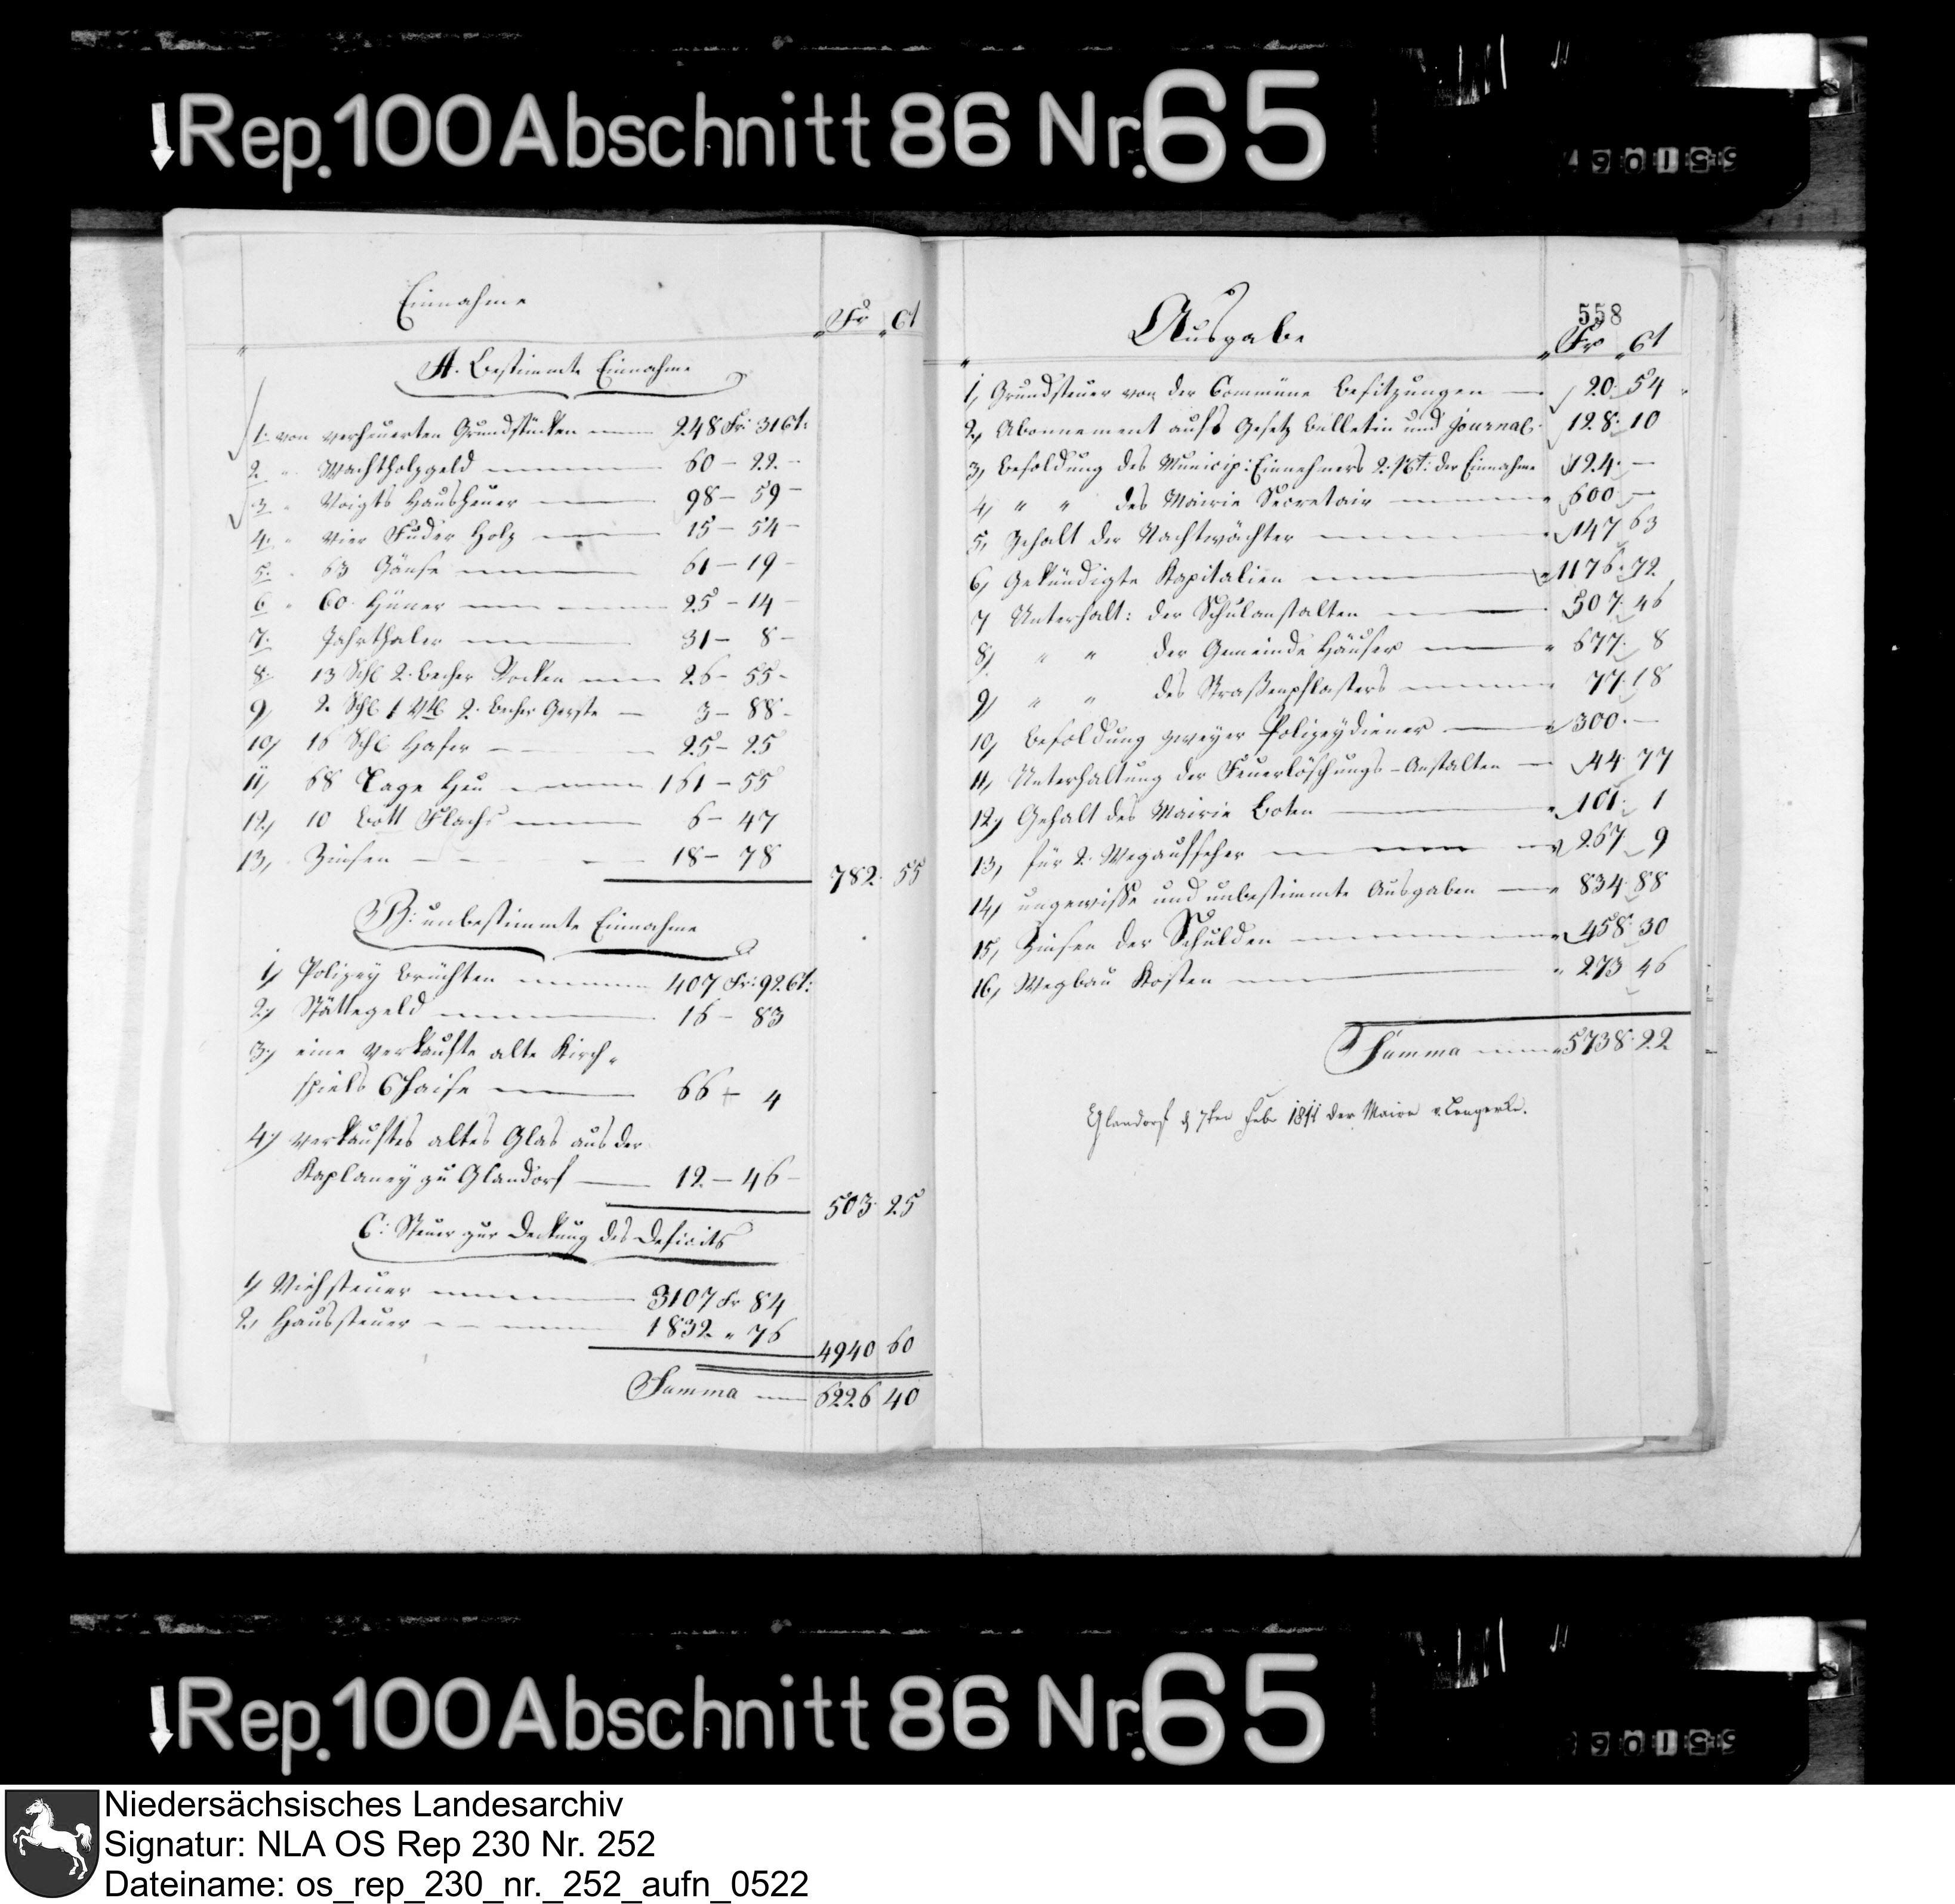 Rep. 100 Abschnitt 86 Nr. 65
Einnahme
Fr Ct
A. Bestimmte Einnahme
1. von verheuerten Grundstücken 248 Fr: 31 Ct:
2. " Wachtholzgeld 60 – 22 –
3. " Voigts Hausheuer 98 – 59 –
4. " vier Fuder Holz 15 – 54 –
5. " 63 Gänse 61 – 19 –
6 " 60 Hüner 25 – 14 –
7. Jahrthaler 31 – 8 –
8. 13 Schl 2. Becher Rocken 26 – 55 –
9, 2. Schl 1 Vtl. 2. Becher Gerste 3 – 88 –
10, 16 Schl Hafer 25 – 25
11, 68 Tage Heu 161 – 55
12, 10 Bott Flachs 6 – 47
13, Zinsen 18 – 78
782. 55
B: unbestimmte Einnahme
1, Polizey Brüchten 407 Fr: 92 Ct:
2, Stättegeld 16 – 83
3, eine verkaufte alte Kirch-
spiels Chaise 66 – 4
4, verkauftes altes Glas aus der
Kaplaney zu Glandorf 12 – 46 –
503. 25
C: Steuer zur Deckung des Deficits
1, Viehsteuer 3107 Fr 84
2, Haussteuer 1832 " 76
4940 60
Summa 6226 40
558
Ausgabe
Fr Ct
1, Grundsteuer von der Commüne Besitzungen 20. 54
2, Abonnement aufs Gesetz Bulletin und Journal 128. 10
3, Besoldung des Municip: Einnehmers 2. pCt: der Einnahme 124. –
4, " " des Mairie Secretair 600 –
5, Gehalt der Nachtwächter 147 63
6, Gekündigte Kapitalien 1176. 72
7 Unterhalt: der Schulanstalten 507. 46
8, " " der Gemeinde Häuser 677. 8
9, " " des Straßenpflasters 77. 18
10, Besoldung zweyer Polizeydiener 300. –
11, Unterhaltung der Feuerlöschungs-Anstalten 44. 77
12, Gehalt des Mairie Boten 101. 1
13, für 2. Wegaufseher 267 9
14, ungewisse und unbestimmte Ausgaben 834. 88
15, Zinsen der Schulden 458. 30
16, Wegbau Kosten 273 46
Summa 5738. 22
Glandorf d 7ten Feb 1811 der Maire v. Lengerke.
Rep. 100 Abschnitt 86 Nr. 65
Niedersächsisches Landesarchiv
Signatur: NLA OS Rep 230 Nr. 252
Dateiname: os_rep_230_nr._252_aufn_0522